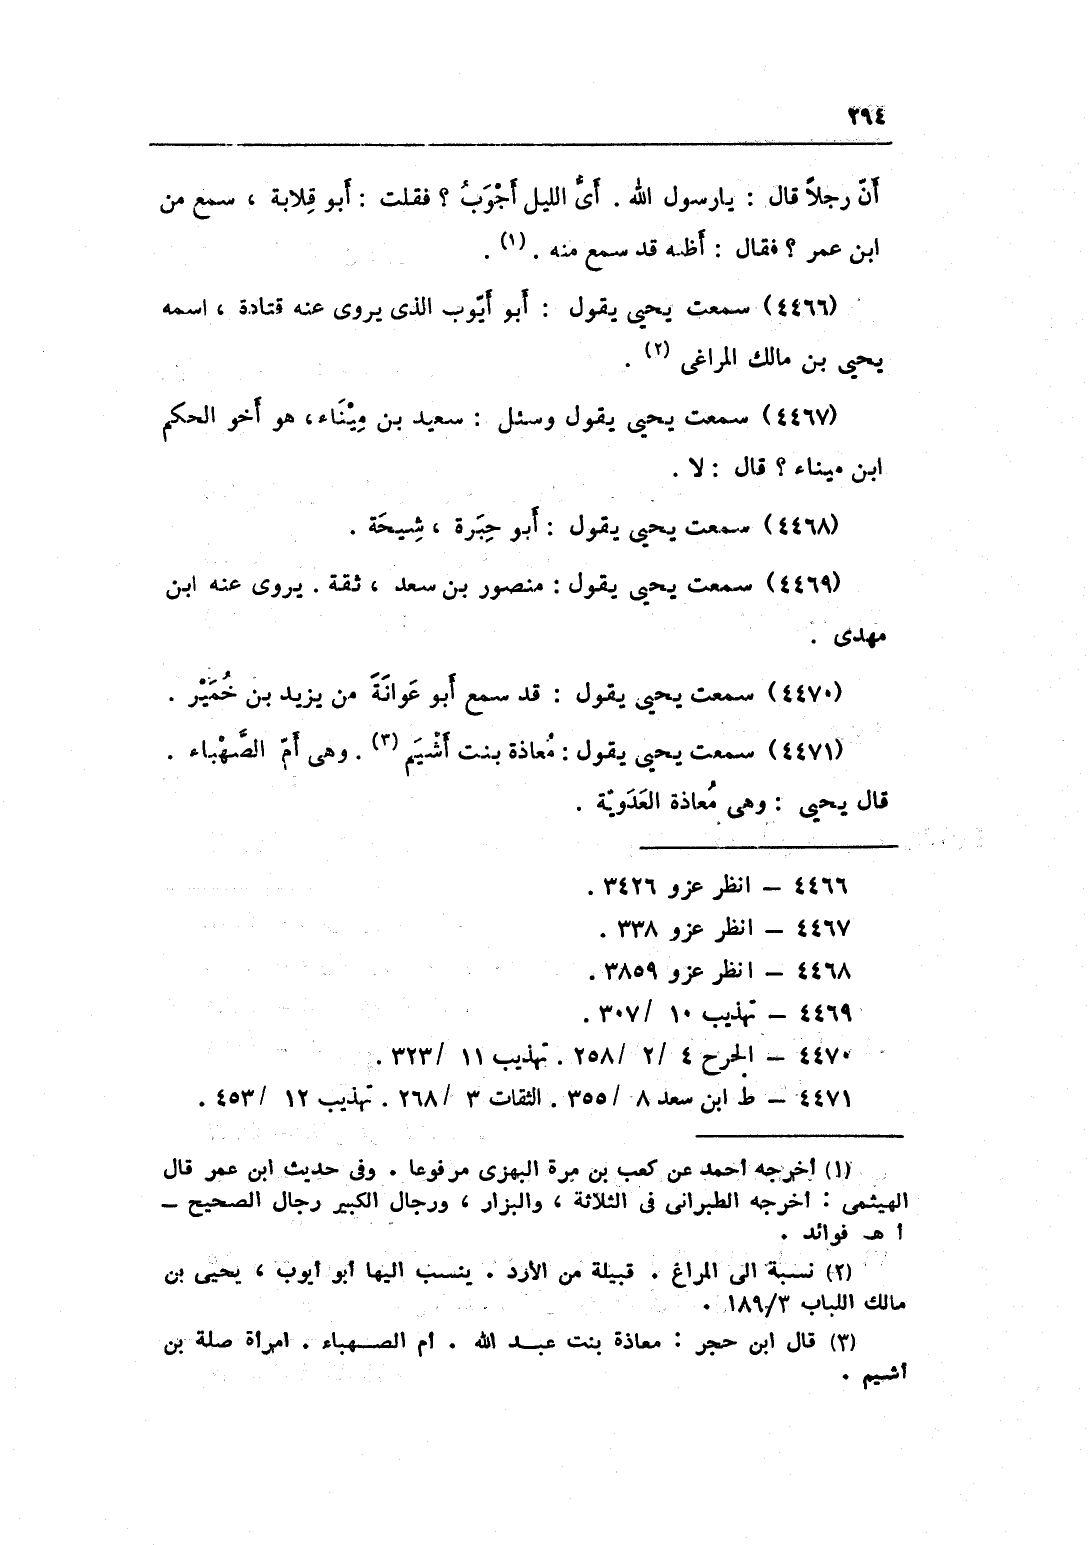 ٣٩٤
أَنّ رجلاً قال : يارسول الله . أَىُّ الليل أَجْوَبُ ؟ فقلت : أَبو قِلابة ، سمع من
ابن عمر ؟ فقال : أَظنه قد سمع منه . (١) .
(٤٤٦٦) سمعت يحيى يقول : أَبو أَيّوب الذى يروى عنه قتادة ، اسمه
يحيى بن مالك المراغى (٢) .
(٤٤٦٧) سمعت يحيى يقول وسئل : سعيد بن مِيْنَاء، هو أَخو الحكم
ابن ميناء ؟ قال : لا .
(٤٤٦٨) سمعت يحيى يقول : أَبو حِبَرة ، شِيحَة .
(٤٤٦٩) سمعت يحيى يقول : منصور بن سعد ، ثقة . يروى عنه ابن
مهدى .
(٤٤٧٠) سمعت يحيى يقول : قد سمع أَبو عَوانَةَ من يزيد بن خُمَيْر .
(٤٤٧١) سمعت يحيى يقول : مُعاذة بنت أَشْيَم (٣) . وهى أَمّ الصَّهْباء .
قال يحيى : وهى مُعاذة العَدَويّة .
٤٤٦٦ – انظر عزو ٣٤٢٦ .
٤٤٦٧ – انظر عزو ٣٣٨ .
٤٤٦٨ – انظر عزو ٣٨٥٩ .
٤٤٦٩ – تهذيب ١٠ /٣٠٧ .
٤٤٧٠ – الجرح ٤ /٢ /٢٥٨ . تهذيب ١١ /٣٢٣ .
٤٤٧١ – ط ابن سعد ٨ /٣٥٥ . الثقات ٣ /٢٦٨ . تهذيب ١٢ /٤٥٣ .
(١) أخرجه أحمد عن كعب بن مرة البهزى مرفوعا . وفى حديث ابن عمر قال
الهيثمى : أخرجه الطبرانى فى الثلاثة ، والبزار ، ورجال الكبير رجال الصحيح –
أ هـ فوائد .
(٢) نسبة الى المراغ . قبيلة من الأزد . ينسب اليها أبو أيوب ، يحيى بن
مالك اللباب ١٨٩/٣ .
(٣) قال ابن حجر : معاذة بنت عبد الله . أم الصهباء . امرأة صلة بن
أشيم .